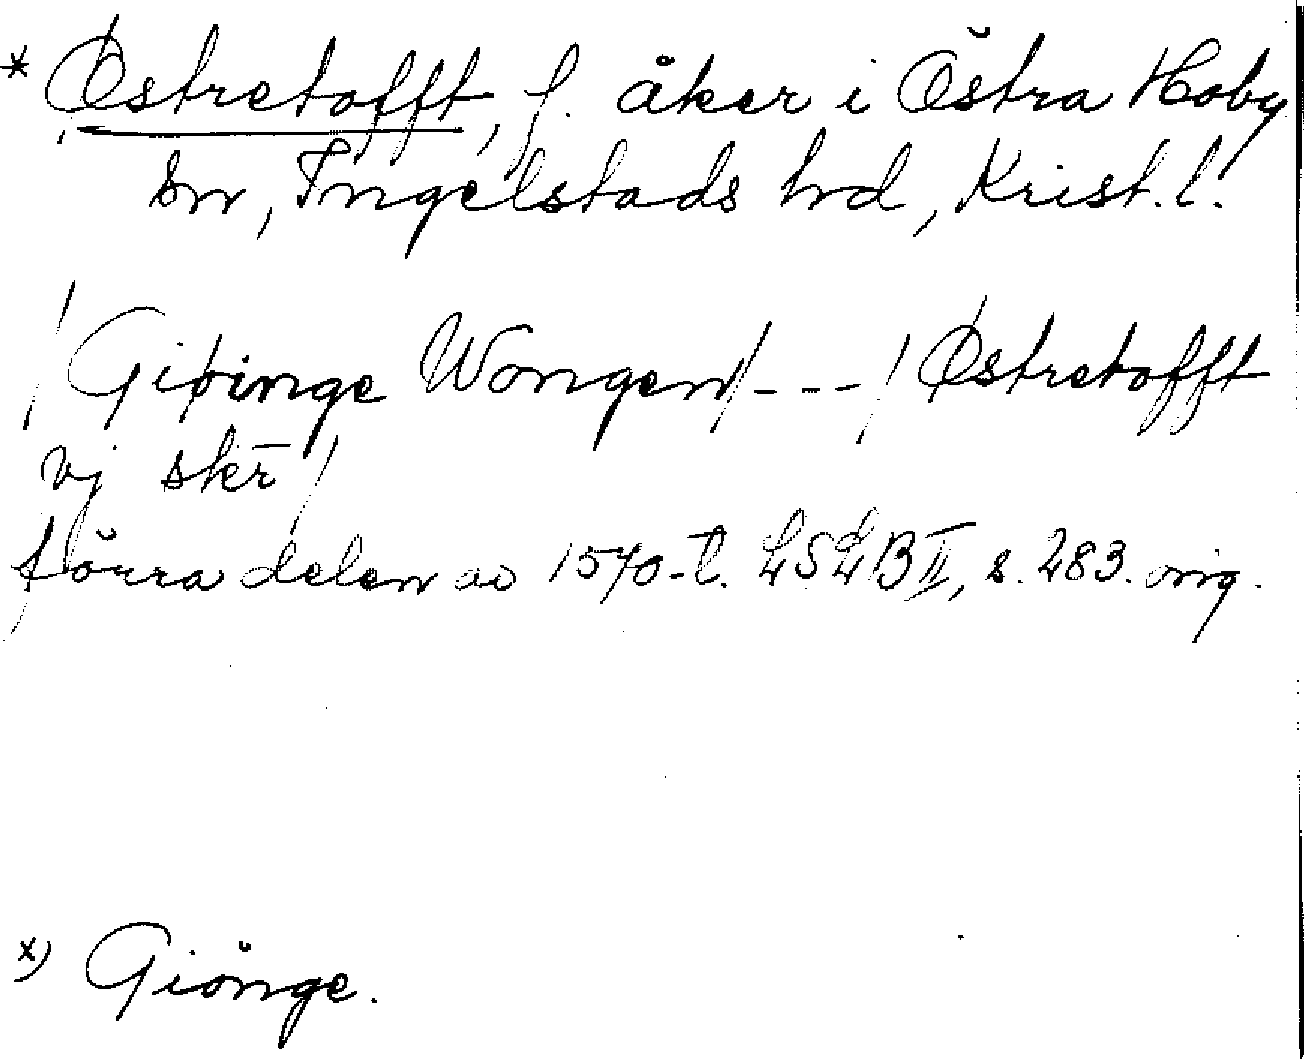 * Østretofft, f. åker i Östra Hoby
sn, Ingelstads hd, Krist. l.
/Giøinge Wongen/ --- / Østretofft
vj skr̄ /
förra delen av 1570-t. LSLB II, s. 283. orig.
x) Giönge.